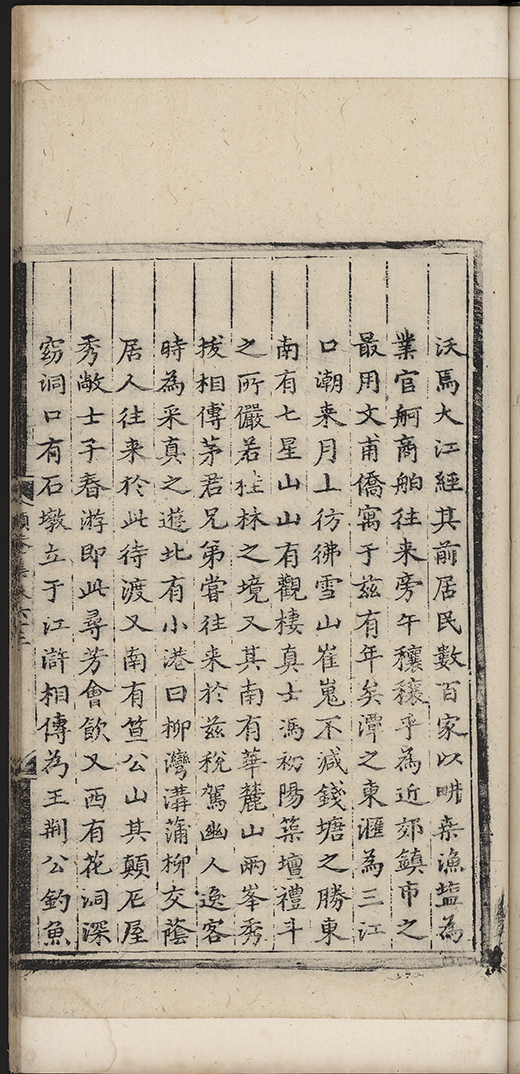 沃焉大江經其前居民數百家以畊桒漁盐為
業官舸商舶往来旁午穰穰乎為近郊鎮市之
最用文甫僑寓于兹有年矣潭之東滙為三江
口潮来月上彷彿雪山崔嵬不减錢塘之勝東
南有七星山山有觀棲真士馮初陽築壇禮斗
之所儼若桂林之境又其南有華麓山兩峯秀
拔相傳茅君兄弟嘗往来於兹稅駕幽人逸客
時為采真之遊北有小港曰柳灣溝蒲柳交蔭
居人往来於此待渡又南有笪公山其顛石屋
秀敞士子春游即此尋芳會飲又西有花洞深
窈洞口有石墩立于江滸相傳為王荆公釣魚